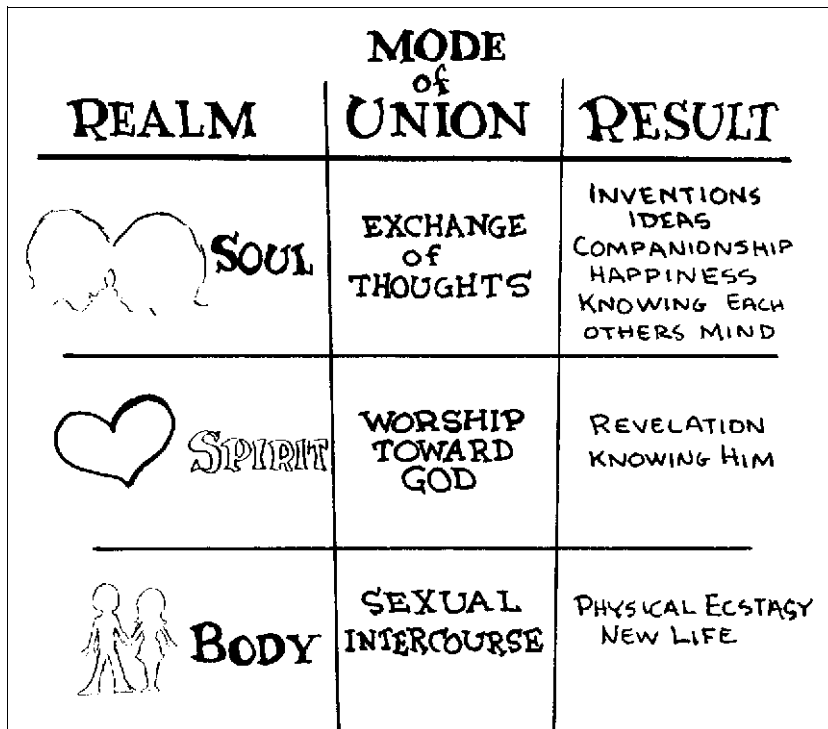 MODE
of
REALM UNION RESULT
SOUL
EXCHANGE
of
THOUGHTS
INVENTIONS
IDEAS
COMPANIONSHIP
HAPPINESS
KNOWING EACH
OTHERS MIND
SPIRIT
WORSHIP
TOWARD
GOD
REVELATION
KNOWING HIM
BODY
SEXUAL
INTERCOURSE
PHYSICAL ECSTASY
NEW LIFE